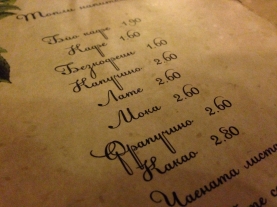 Топли напитки
Бяло кафе 1.90
Кафе 1.60
Безкофеин 1.60
Капучино 2.60
Лате 2.60
Мока 2.60
Фрапучино 2.60
Какао 2.80
Чаената листа